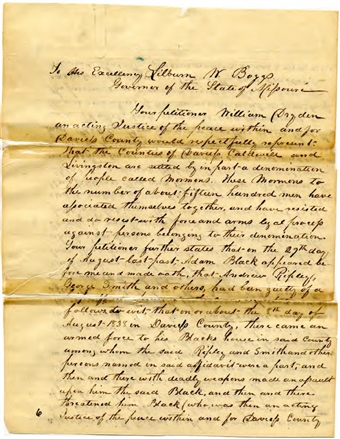 To His Excellency Lilburn W. Boggs
Governor of the State of Missouri
Your petitioner William Dryden
an acting Justice of the peace within and for
Daviess County would respectfully represent
that the Counties of Daviess Caldwell and
Livingston are settled by in part a denomination
of People called Mormons. These Mormons to
the number of about fifteen hundred men have
associated themselves together, and have resisted
and do resist with force and arms legal process
against persons belonging to their denomination
Your petitioner further states that on the 29th day
of August last past Adam Black appeared be
fore me and made oath, that Andrew Ripley
George Smith and others, had been guilty of a
follows to wit, that on or about the 8th day of
August 1838 in Daviess County, there came an
armed force to his Blacks house in said County
among whom the said Ripley and Smith and other
persons named in said affidavit were a part, and
then and there with deadly weapons made an assault
upon him the said Black, and then and there
threatened him Black (who was then an acting
6 Justice of the peace within and for Daviess County